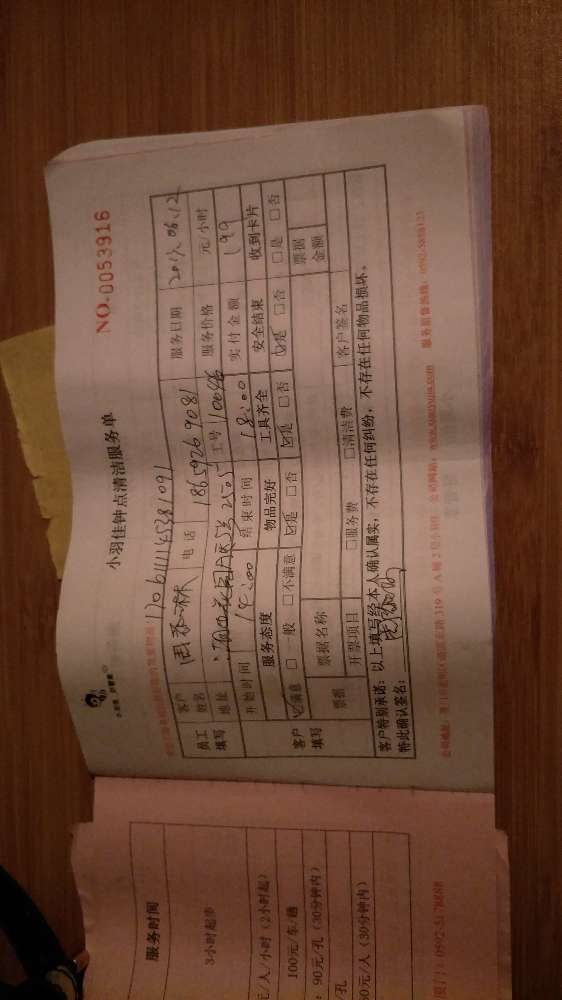 小羽佳钟点清洁服务单
NO.0053916
170611114538 1091
员工填写
客户姓名
电话 18659269081
服务日期 2017.06.12
地址
工号 10646
服务价格 元/小时
开始时间 14:00 结束时间 18:00 实付金额 199
客户填写
服务态度 物品完好 工具齐全 安全结束 收到卡片
☑满意 □一般 □不满意 ☑是 □否 ☑是 □否 ☑是 □否 □是 □否
票据 票据名称 票据金额
开票项目 □服务费 □清洁费 客户签名
客户特别承诺：以上填写经本人确认属实，不存在任何纠纷，不存在任何物品损坏。
特此确认签名：
服务时间
3小时起步
元/人/小时（2小时起）
100元/车/趟
：90元/孔（30分钟内）
孔
0元/人（30分钟内）
厦门：0592-5178888